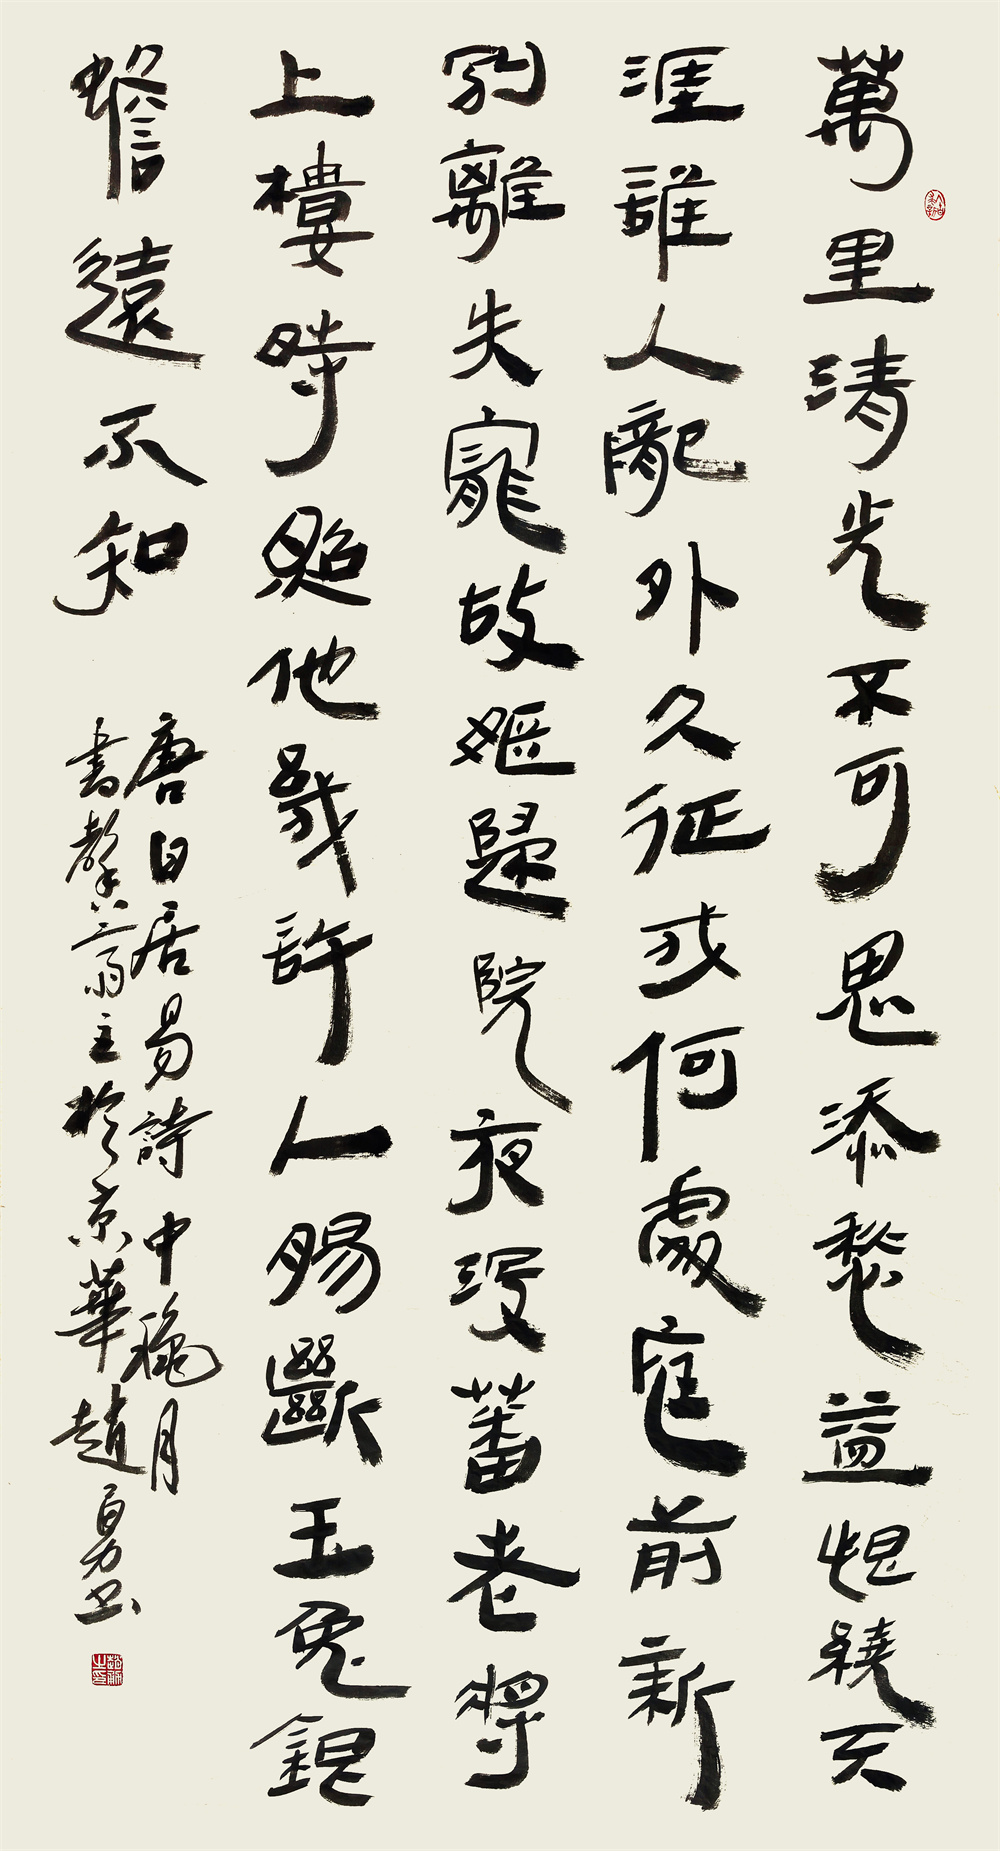 萬里清光不可思添愁益恨繞天
涯誰人隴外久征戍何處庭前新
別離失寵故姬歸院夜沒蕃老將
上樓時照他幾許人腸斷玉兔銀
蟾遠不知
唐白居易詩中穐月
書馨齋主於京華趙勇书